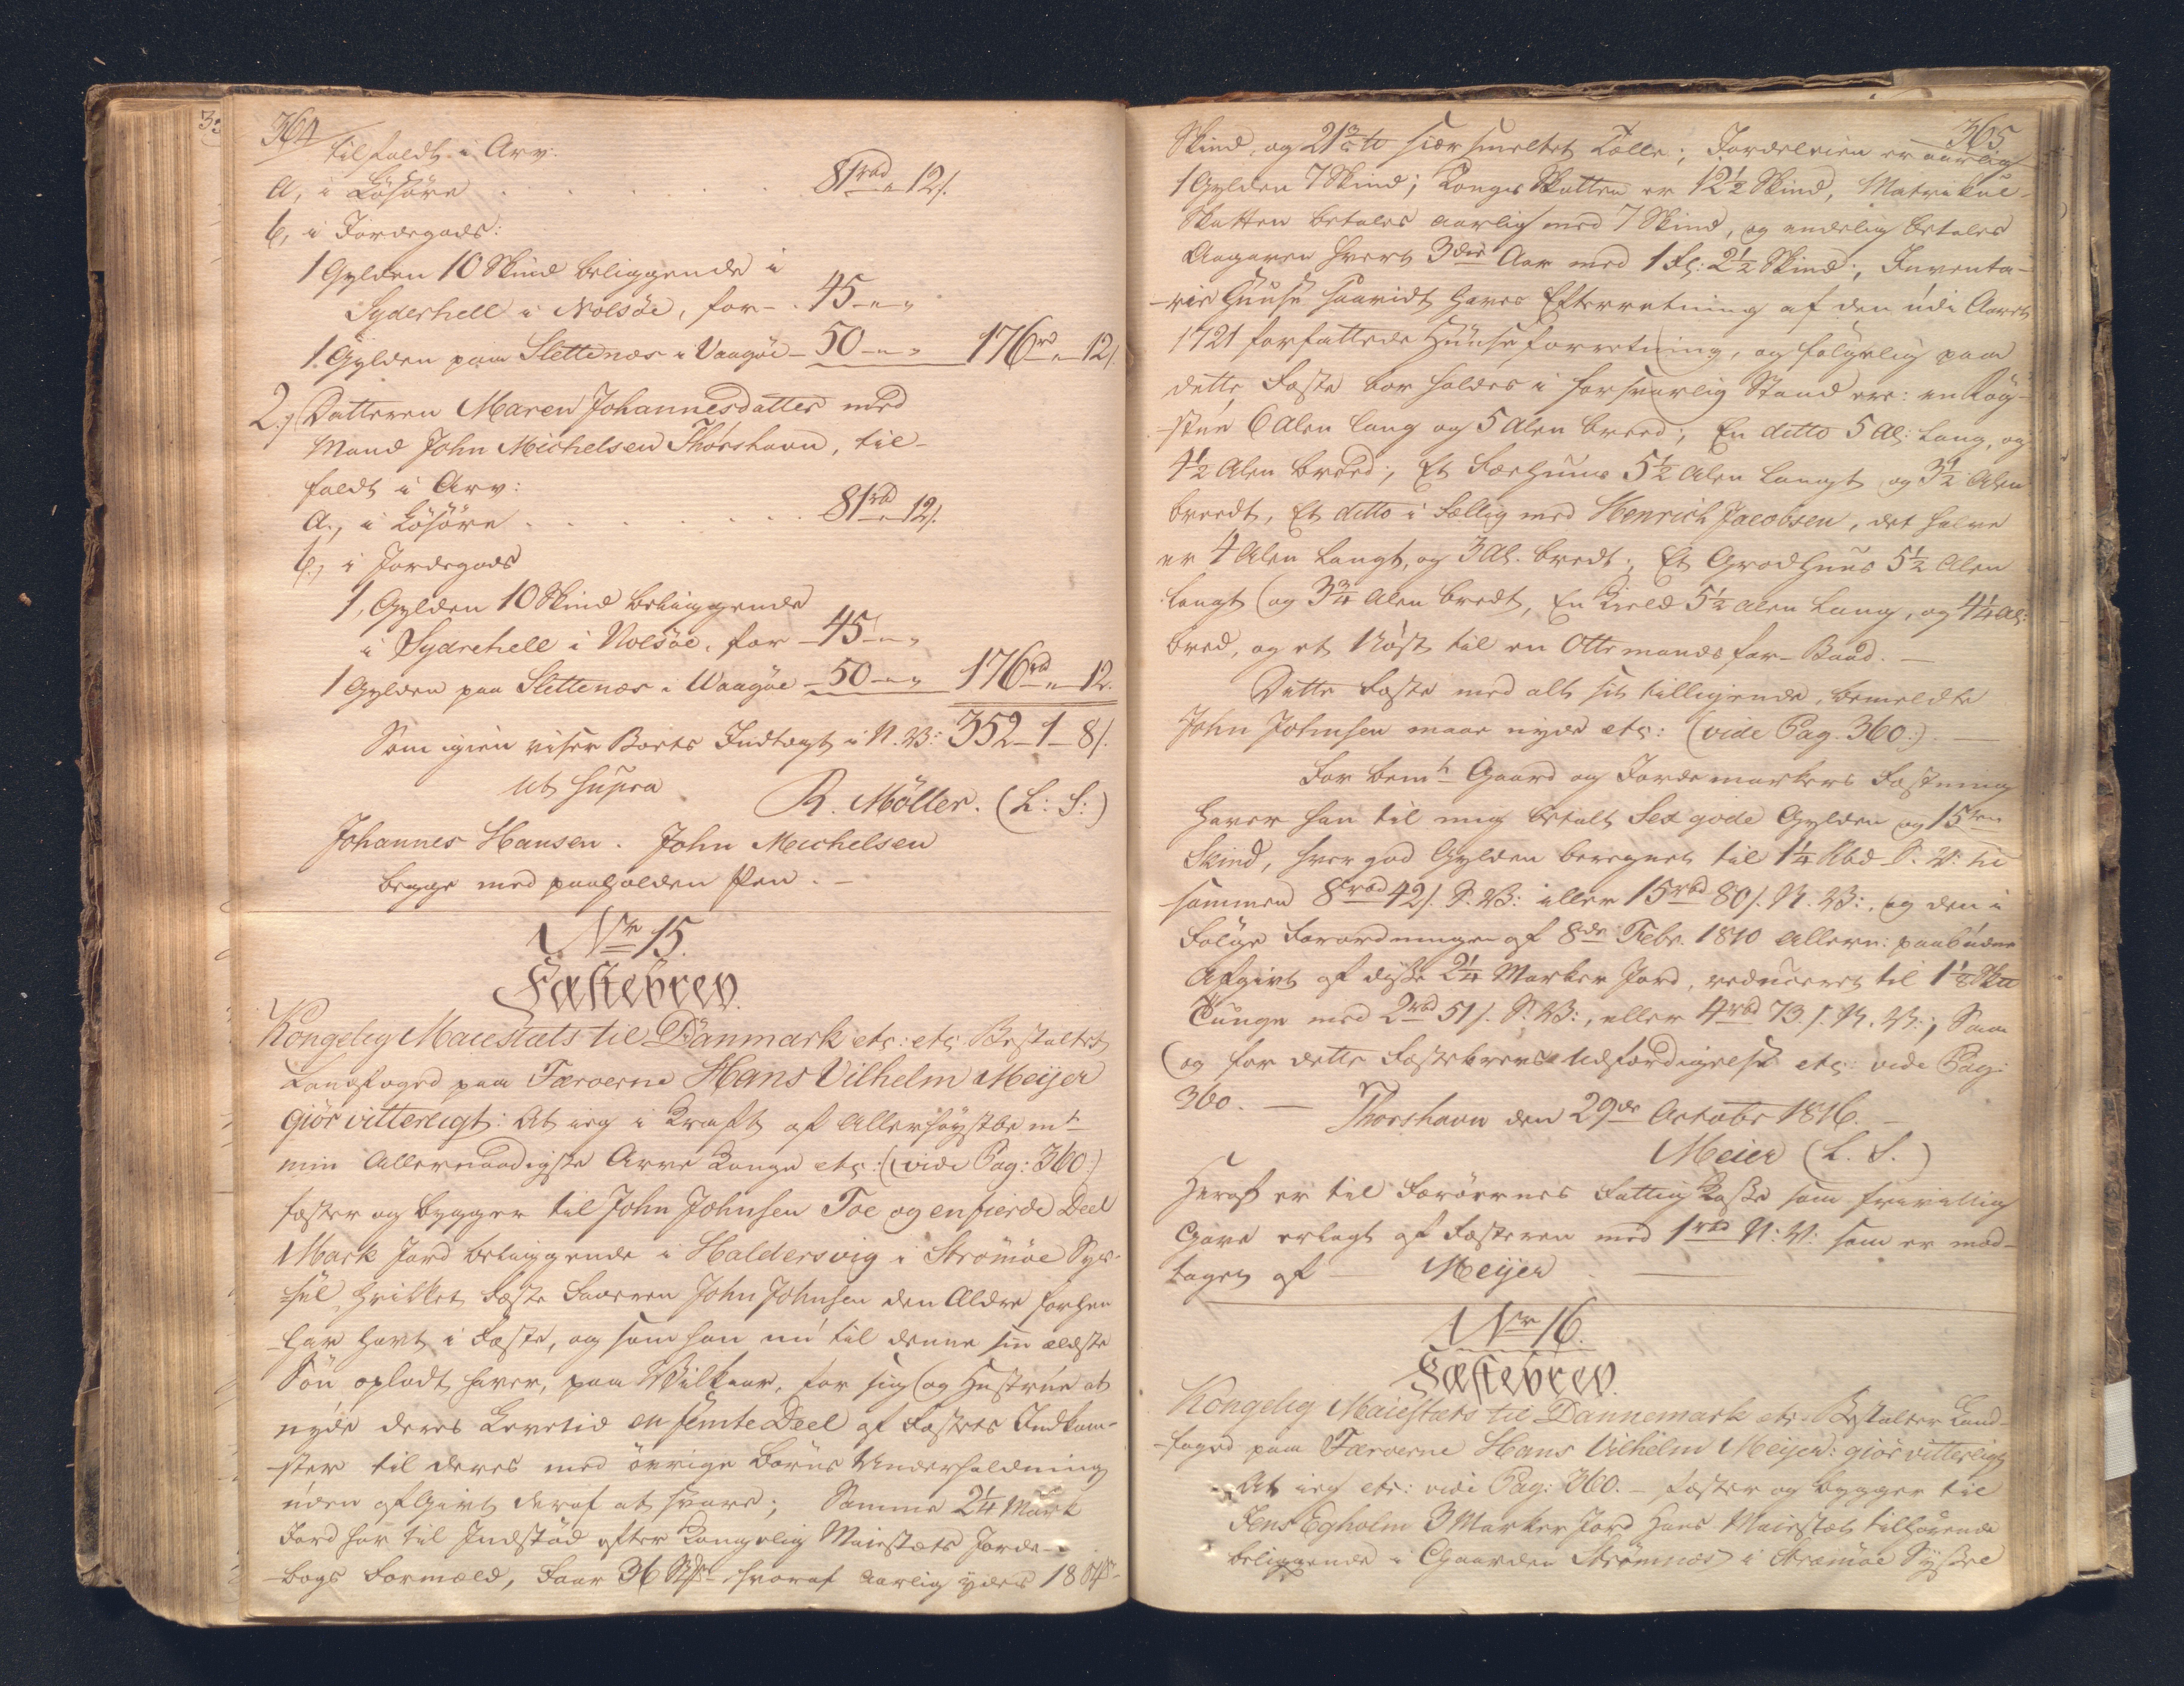 364
tilfaldt i Arv:
a, i Løsøre . . . . . . 81rbd „ 12/.
b, i Jordegods:
1 Gylden 10 Skind beliggende i
Syderhell i Nolsöe, for - . 45 „ „
1 Gylden paa Slettenæs i Vaagöe - 50 - „ „ 176rd „ 12/.
2.) Datteren Maren Johannesdatter med
Mand John Michelsen Thorshavn, til-
faldt i Arv:
a., i Løsøre . . . . . . . 81rbd „ 12/.
b., i Jordegods
1, Gylden 10 Skind beliggende
i Sydrehell i Nolsöe, for - 45 - „ „
1 Gylden paa Slettenæs i Waagöe - 50 - „ „ 176rbd „ 12.
Som igien viser Boets Indtægt i N. V: 352 - 1 - 8/.
Ut supra R. Möller. (L: S:)
Johannes Hansen. John Michelsen
begge med paaholden Pen. -
No 15.
Fæstebrev.
Kongelig Maiestæts til Danmark etc: etc: Bestalter
Landfoged paa Færoerne Hans Vilhelm Meijer
giör vitterligt: At ieg i Kraft af Allerhöystbemt
min Allernaadigste Arve Konge etc: (vide Pag: 360)
fæster og bygger til John Johnsen Toe og en fierde Deel
Mark Jord beliggende i Haldersvig i Strömöe Sys-
sel, hvilket Fæste Faderen John Johnsen den Ældre forhen
har havt i Fæste, og som han nu til denne sin ældste
Sön opladt haver, paa Vilkaar, for sig og Hustrue at
nyde deres Levetid en femte Deel af Fæstets Indkom-
ster til deres med övrige Börns Underholdning
uden Afgivt deraf at svare; Samme 2¼ Mark
Jord har til Indstød efter Kongelig Maiestæts Jorde-
bogs Formæld, Faar 36 Stk, hvoraf aarlig ydes 18
365
Skind, og 21 3/5 tt siær smeltet Tælle; Jordeleien er aarlig
1 Gylden 7 Skind; Konge Skatten er 12½ Skind, Matrikul-
Skatten betales aarlig med 7 Skind, og endelig betales
Aagaven hvert 3die Aar med 1 Fl: 2½ Skind; Inventa-
rie Huuse saavidt haves Efterretning af den udi Aaret
1721 forfattede Huuseforretning, og fölgelig paa
dette Fæste bör holdes i forsvarlig Stand ere: en Rög-
stue 6 Alen lang og 5 Alen breed; En ditto 5 Al: lang, og
4½ Alen breed; Et Faehuus 5½ Alen langt og 3½ Alen
breedt, Et ditto i Fællig med Henrich Jacobsen, det halve
er 4 Alen langt, og 3 Al. bredt; Et Grodhuus 5½ Alen
langt og 3¾ Alen bredt, En Kield 5½ Alen lang, og 4¼ Al:
bred, og et Nöst til en Ottemandsfar-Baad. -
Dette Fæste med alt sit tilliggende, bemeldte
John Johnsen maae nyde etc: (vide Pag. 360:)
For bemt Gaard og Jordemarkers Fæstning
haver han til mig betalt Sex gode Gylden og 15ten
Skind, hver god Gylden beregnet til 1¼ Rbd S. V. til-
sammen 8rbd 42/. S. V: eller 15rbd 80/. N. V:, og den i
Fölge Forordningen af 8de Febr. 1810 Allern: paabudne
Afgivt af disse 2¼ Marker Jord, reduceret til 1⅛
Tunge med 2rbd 51/. S. V:, eller 4rbd 73./. N. V:, Saa
og for dette Fæstebrevs Udfærdigelse etc: vide Pag:
360. - Thorshavn den 29de Octobr 1816. -
Meier (L. S.)
Heraf er til Færöernes Fattig Kasse som frivillig
Gave erlagt af Fæsteren med 1rbd N: V: som er mod-
taget af Meijer
No 16.
Fæstebrev.
Kongelig Maiestæts til Dannemark etc: Bestalter Land-
foged paa Færoerne Hans Vilhelm Meijer: giör vitterligt,
At ieg etc: vide Pag: 360. - fæster og bygger til
Jens Egholm 3 Marker Jord Hans Maiestæt tilhörende
beliggende i Gaarden Strömnæs i Strömöe Syssel